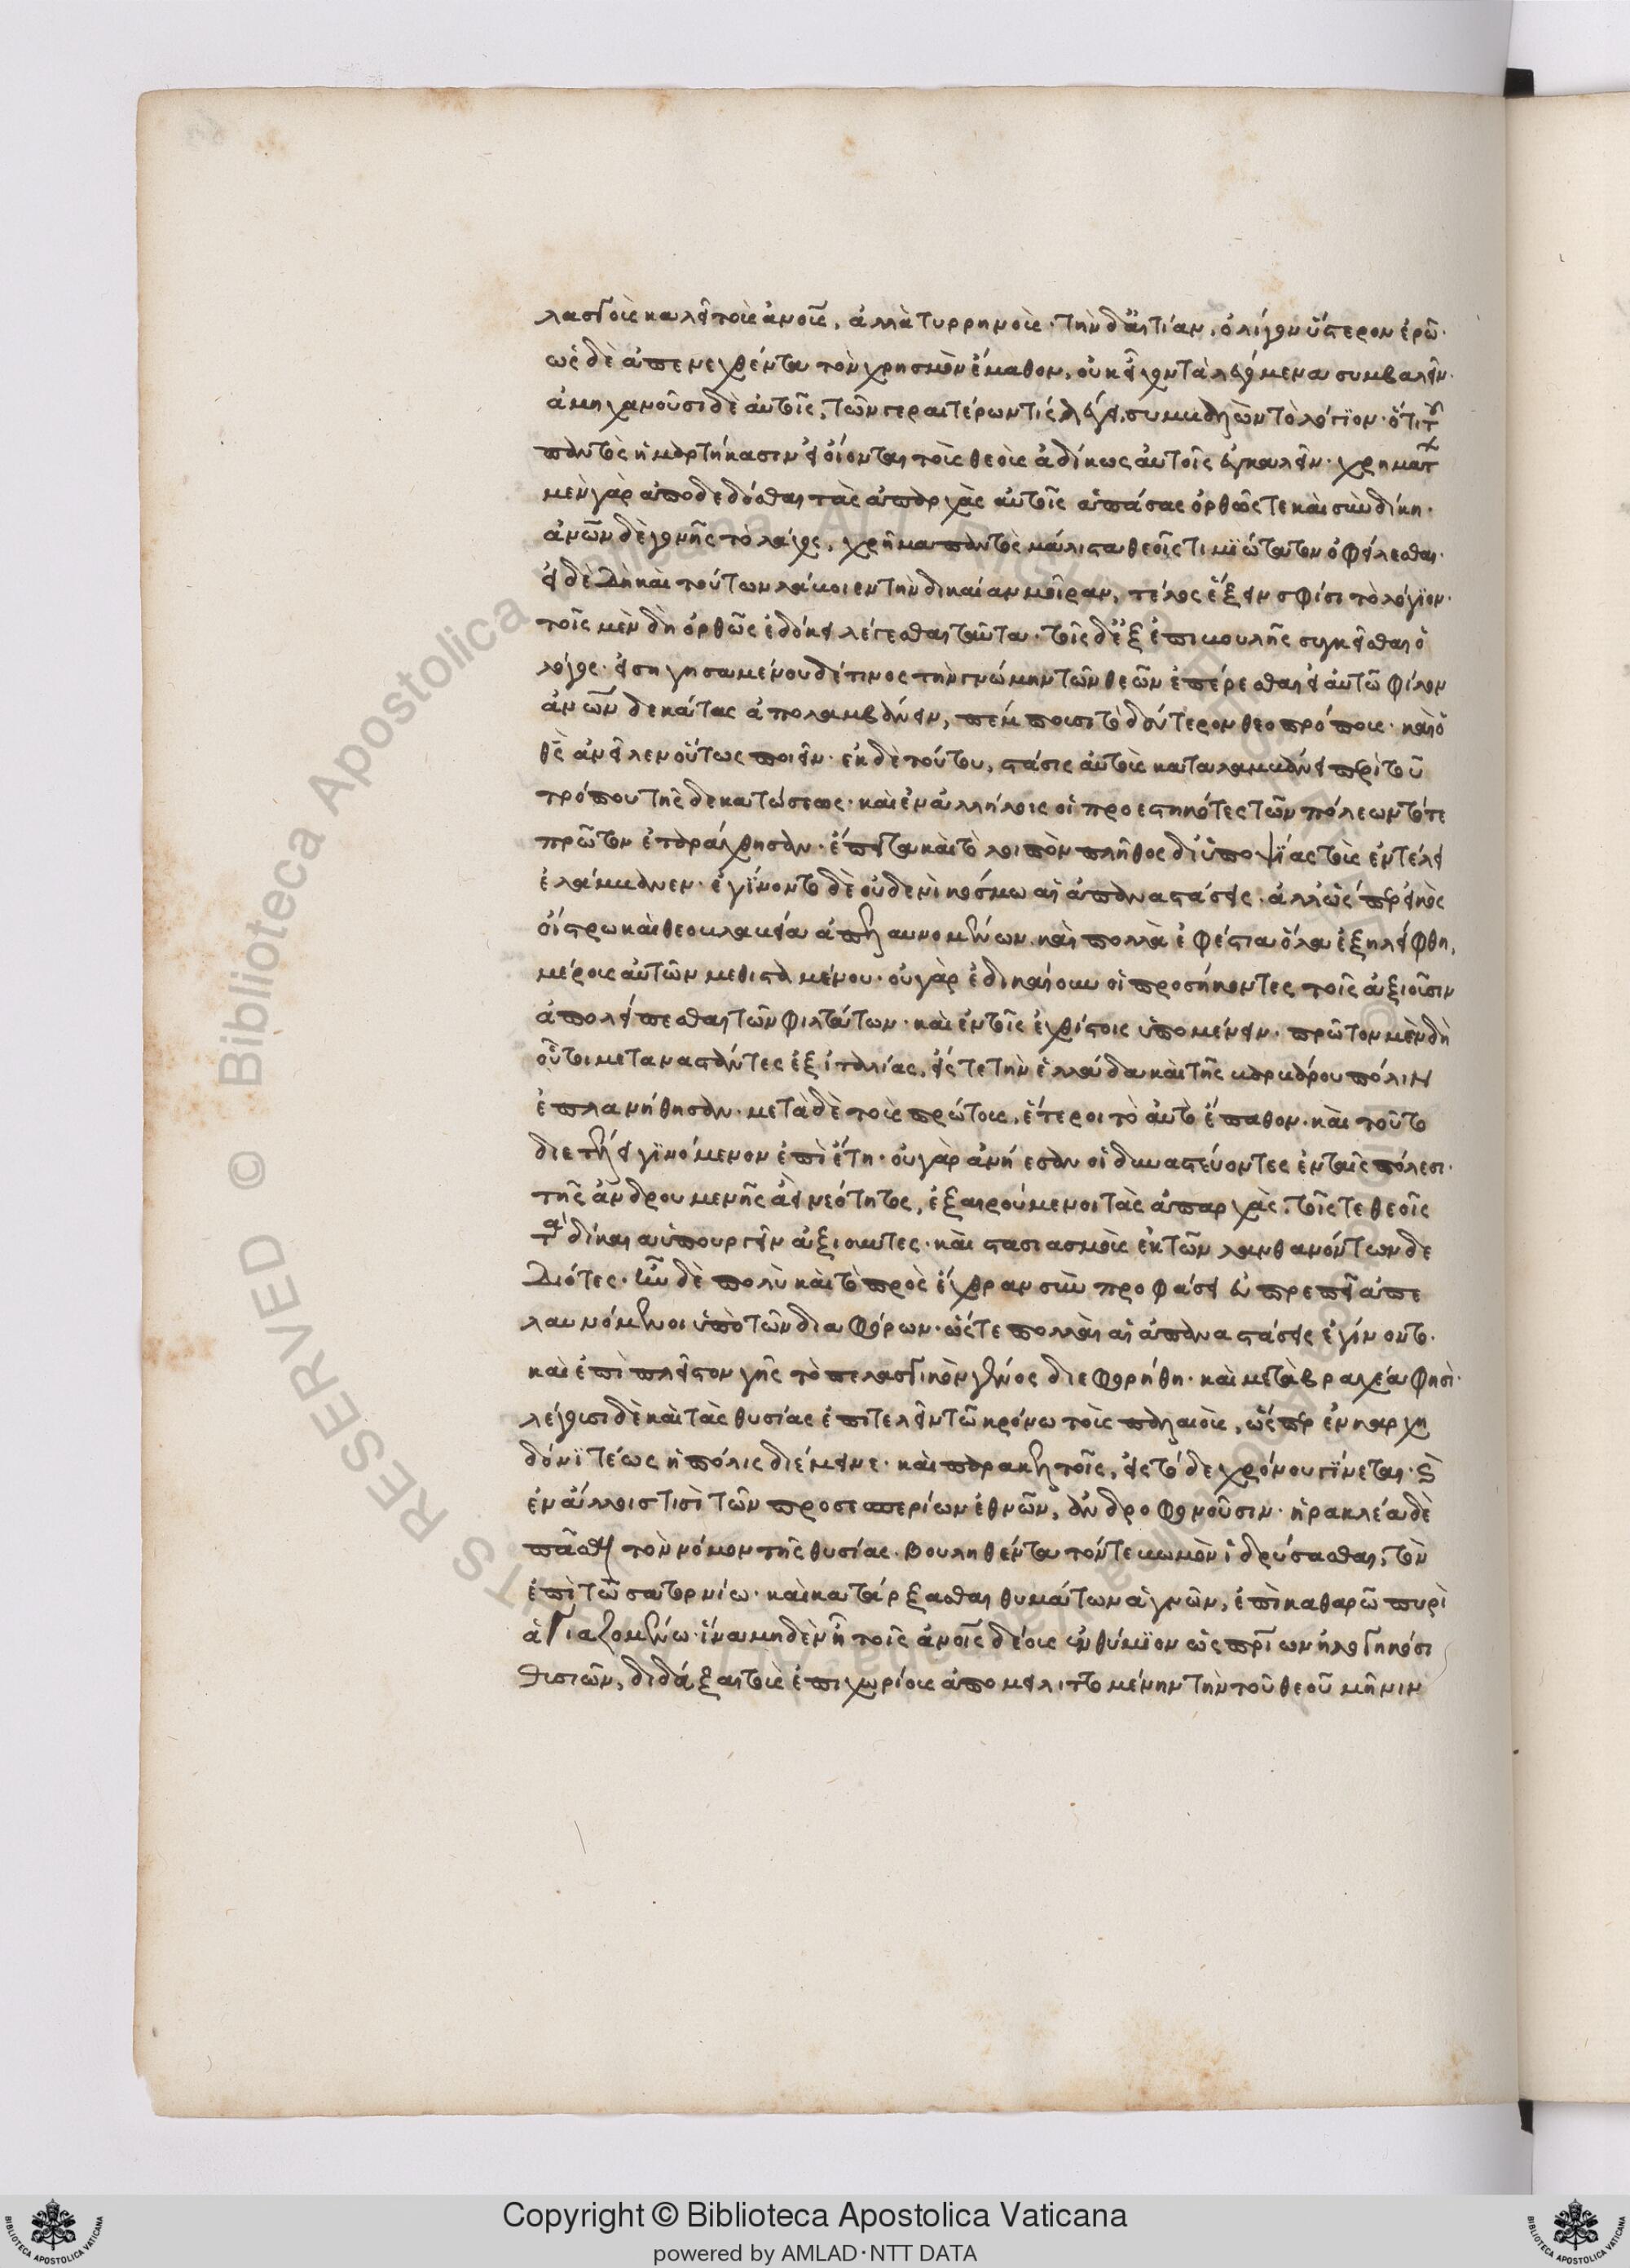 λασγοὶς καλεῖ τοὶς ἀνοις, ἀλλὰ τυρρηνοὶς· τὴν δ' αἰτίαν, ὀλίγον ὕστερον ἐρῶ·
ὡς δὲ ἀπενεχθέντα τὸν χρησμὸν ἔμαθον, οὐκ εἶχον τὰ λεγόμενα συμβαλεῖν·
ἀμηχανοῦσι δὲ αὐτοῖς, τῶν γεραιτέρων τίς λέγει, συμβαλὼν τὸ λόγϊον· ὅτι τ
παντὸς ἡμαρτήκασιν εἰ οἴονται τοὶς θεοὶς ἀδίκως αὐτοῖς ἐγκαλεῖν· χρηματ
μὲν γὰρ ἀποδεδόσθαι τὰς ἀπαρχὰς αὐτοῖς ἁπάσας ὀρθῶς τε καὶ σὺν δίκη·
ἀνων δὲ γονῆς τὸ λάχος, χρῆμα παντὸς μάλιστα θεοῖς τιμϊώτατον ὀφείλεσθαι·
εἰ δὲ δὴ καὶ τούτων λάβοιεν τὴν δικαίαν μοῖραν, τέλος ἕξειν σφίσι τὸ λόγϊον·
τοῖς μὲν δὴ ὀρθῶς ἐδόκει λέγεσθαι ταῦτα· τοῖς δ' ἐξ ἐπιβουλῆς συγκεῖσθαι ὁ
λόγος· εἰσηγησαμένου δέ τινος τὴν γνώμην τῶν θεῶν ἐπέρεσθαι εἰ αὐτῶ φίλον
ἀνων δεκάτας ἀπολαμβάνειν, πέμπουσι τὸ δεύτερον θεοπρόπους· καὶ ὁ
θς ἀνεῖλεν οὕτως ποιεῖν· ἐκ δὲ τούτου, στάσις αὐτοὶς καταλαμβάνει περὶ τοῦ
τρόπου τῆς δεκατώσεως· καὶ ἐν ἀλλήλοις οἱ προεστηκότες τῶν πόλεων τότε
πρῶτον ἐταράχθησαν· ἔπειτα καὶ τὸ λοιπὸν πλῆθος δι' ὑποψίας τοὶς ἐν τέλει
ἐλάμβανεν· ἐγίνοντο δὲ οὐδενὶ κόσμω αἱ ἀπαναστάσεις· ἀλλ' ὥσπερ εἰκὸς
οἴστρω καὶ θεοβλαβεία ἀπελαυνομένων, καὶ πολλὰ ἐφέστια ὅλα ἐξηλείφθη,
μέρους αὐτῶν μεθισταμένου· οὐ γὰρ ἐδικαίουν οἱ προσήκοντες τοῖς ἀξιοῦσιν
ἀπολείπεσθαι τῶν φιλτάτων· καὶ ἐν τοῖς ἐχθίστοις ὑπομένειν· πρῶτον μὲν δὴ
οὗτοι μεταναστάντες ἐξ ἰταλίας, εἴς τε τὴν ἑλλάδα καὶ τῆς βαρβάρου πόλιν
ἐπλανήθησαν· μετὰ δὲ τοὶς πρώτους, ἕτεροι τὸ αὐτὸ ἔπαθον· καὶ τοῦτο
διετέλει γϊνόμενον ἐπὶ ἔτη· οὐ γὰρ ἀνήεσαν οἱ δυναστεύοντες ἐν ταῖς πόλεσι·
τῆς ἀνδρουμενῆς ἀεὶ νεότητος, ἐξαιρούμενοι τὰς ἀπαρχὰς· τοῖς τε θεοῖς
τ δίκαια ὑπουργεῖν ἀξιουντες· καὶ στασιασμοὶς ἐκ τῶν λανθανόντων δε
διότες· ἦν δὲ πολὺ καὶ τὸ πρὸς ἔχθραν σὺν προφάσει εὐπρεπεῖ ἀπε
λαυνόμενοι ὑπὸ τῶν διαφόρων· ὥστε πολλαὶ αἱ ἀπαναστάσεις ἐγίνοντο·
καὶ ἐπὶ πλεῖστον γῆς τὸ πελασγικὸν γένος διεφορήθη· καὶ μετὰ βραχέα φησὶ·
λέγουσι δὲ καὶ τὰς θυσίας ἐπιτελεῖν τῶ κρόνω τοὶς παλαιοὶς, ὥσπερ ἐν καρχη
δόνϊ τέως ἡ πόλις διέμεινε· καὶ παρὰ κελτοῖς, εἰς τόδε χρόνου γίνεται· καὶ
ἐν ἄλλοις τισὶ τῶν προσεσπερίων ἐθνῶν, ἀνδροφονοῦσιν· ἡρακλέα δὲ
παῦσαι τὸν νόμον τῆς θυσίας· βουληθέντα τόν τε βωμὸν ἱδρύσασθαι, τὸν
ἐπὶ τῶ σατορνίω· καὶ κατάρξασθαι θυμάτων ἁγνῶν, ἐπὶ καθαρῶ πυρὶ
ἁγιαζομένω· ἵνα μηδὲν ἦ τοῖς ἀνοις δέος ἐνθύμϊον ὡς πρίων ἠλογηκόσι
θυσιῶν, διδάξαι τοὶς ἐπιχωρίους ἀπομειλιττομένην τὴν τοῦ θεοῦ μῆνιν